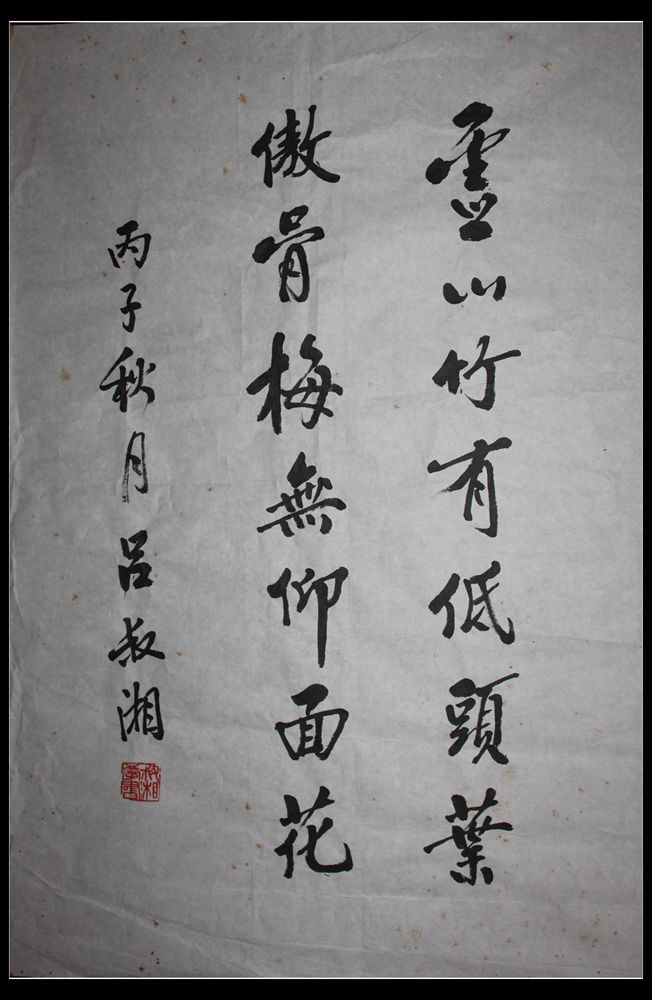 虛心竹有低頭葉
傲骨梅無仰面花
丙子秋月呂叔湘
叔湘